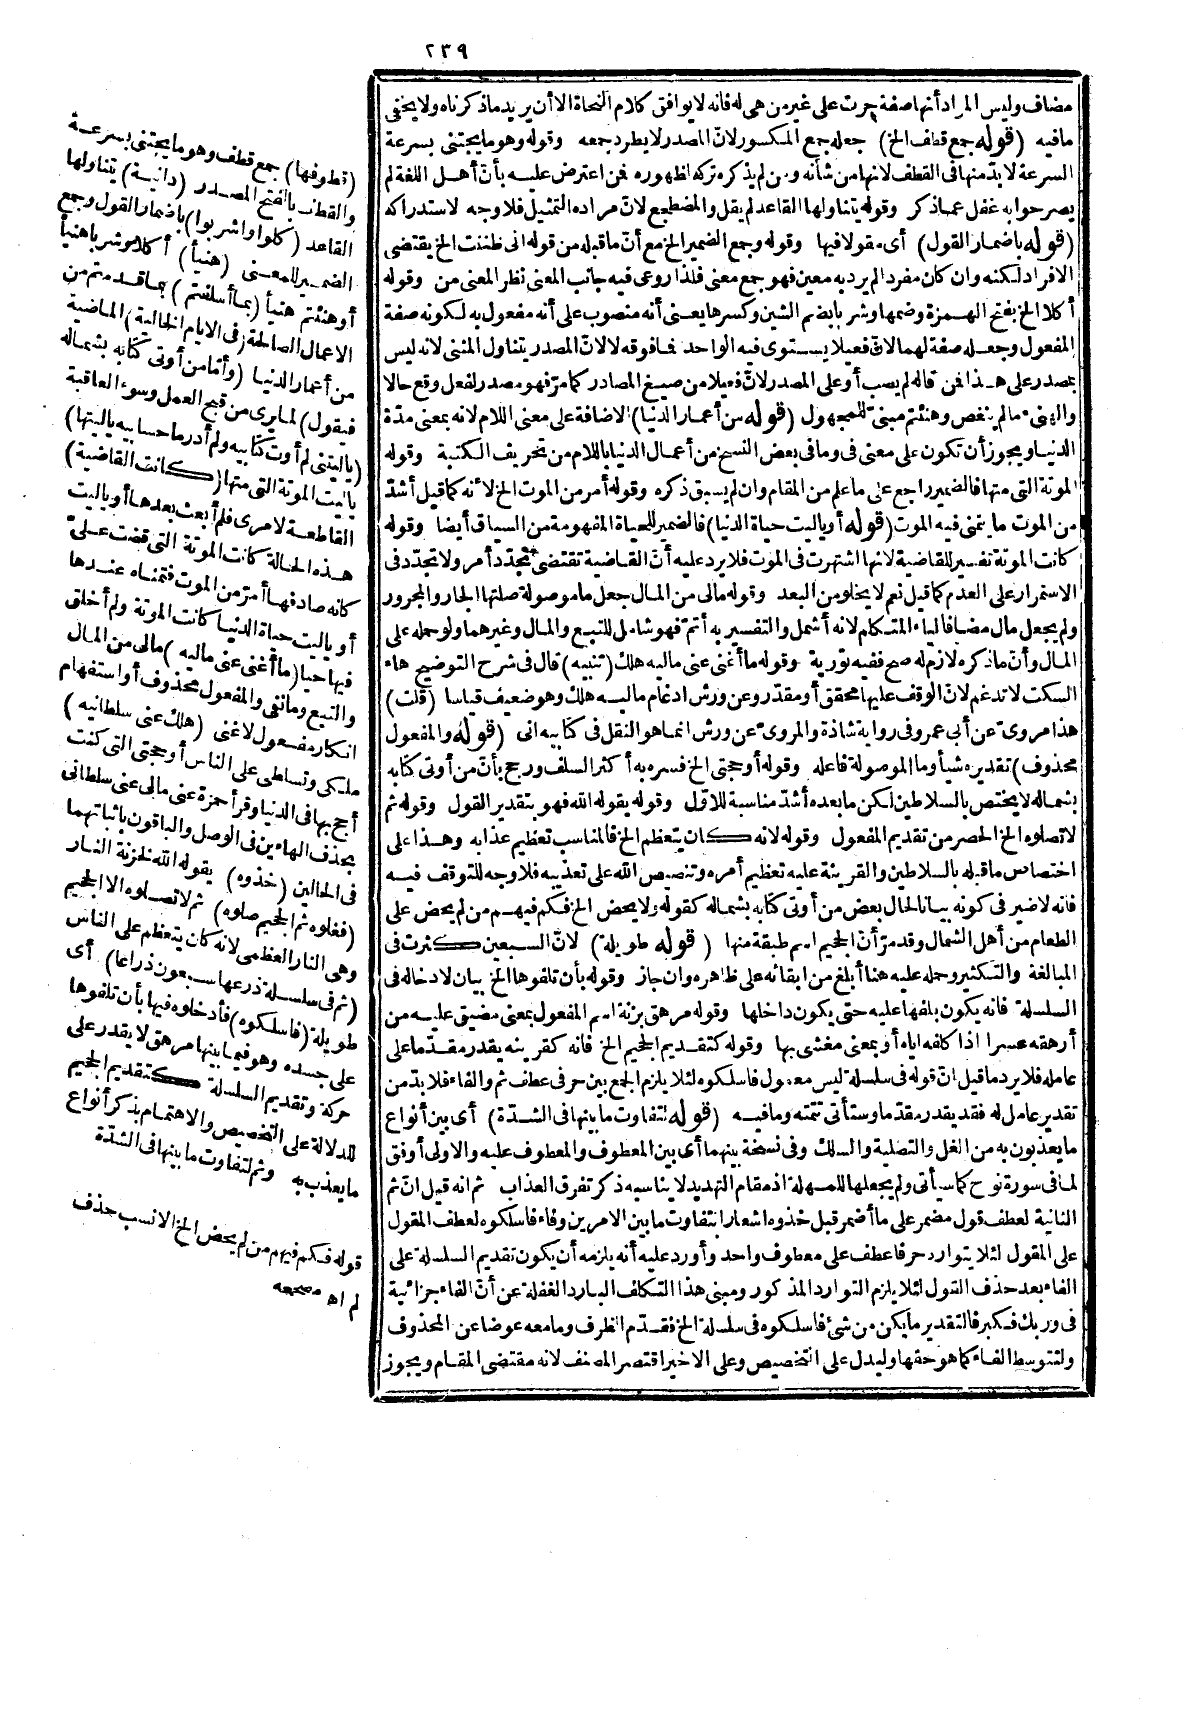 ٢٣٩
مضاف وليس المراد أنها صفة جرت على غير من هي له فانه لا يوافق كلام النحاة الا أن يريد ما ذكرناه ولا يخفى
ما فيه (قوله جمع قطف الخ) جعله جمع المكسور لانّ المصدر لا يطرد جمعه وقوله وهو ما يجتنى بسرعة
السرعة لا بدّ منها في القطف لانها من شأنه ومن لم يذكره تركه لظهوره فمن اعترض عليه بأنّ أهل اللغة لم
يصرحوا به غفل عما ذكر وقوله يتناولها القاعد لم يقل والمضطجع لانّ مراده التمثيل فلا وجه لاستدراكه
(قوله باضمار القول) أي مقولا فيها وقوله وجمع الضمير الخ مع أنّ ما قبله من قوله اني ظننت الخ يقتضى
الافراد لكنه وان كان مفرد الم يرد به معين فهو جمع معنى فلذا روعى فيه جانب المعنى نظر المعنى من وقوله
أكلا الخ بفتح الهمزة وضمها وشربا بضم الشين وكسرها يعنى أنه منصوب على أنه مفعول به لكونه صفة
المفعول وجعله صفة لهما لانّ فعيلا يستوى فيه الواحد فما فوقه لا لانّ المصدر يتناول المثنى لانه ليس
بمصدر على هذا فمن قاله لم يصب أو على المصدر لانّ فعيلا من صيغ المصادر كما مرّ فهو مصدر لفعل وقع حالا
والهنيء ما لم ينغص وهنئتم مبنىّ للمجهول (قوله من أعمار الدنيا) الاضافة على معنى اللام لانه بمعنى مدّة
الدنيا ويجوز أن تكون على معنى في وما في بعض النسخ من أعمال الدنيا باللام من تحريف الكتبة وقوله
الموتة التي متها فالضمير راجع على ما علم من المقام وان لم يسبق ذكره وقوله أمر من الموت الخ لأنه كما قيل أشدّ
من الموت ما يتمنى فيه الموت (قوله أو ياليت حياة الدنيا) فالضمير للحياة المفهومة من السياق أيضا وقوله
كانت الموتة تفسير للقاضية لانها اشتهرت في الموت فلا يرد عليه أنّ القاضية تقتضى تجدّد أمر ولا تجدّد في
الاستمرار على العدم كما قيل نعم لا يخلو من البعد وقوله مالي من المال جعل ما موصولة صلتها الجار والمجرور
ولم يجعل مال مضافا لياء المتكلم لانه أشمل والتفسير به أتمّ فهو شامل للتبع والمال وغيرهما ولو حمله على
المال وأنّ ما ذكره لازم له صح ففيه تورية وقوله ما أغنى عنى ماليه هلك (تنبيه) قال في شرح التوضيح هاء
السكت لا تدغم لانّ الوقف عليها محقق أو مقدّر وعن ورش ادغام ماليه هلك وهو ضعيف قياسا (قلت)
هذا مروىّ عن أبي عمرو في رواية شاذة والمروىّ عن ورش انما هو النقل في كتابيه انى (قوله والمفعول
محذوف) تقديره شيأ وما الموصولة فاعله وقوله أو حجتى الخ فسره به أكثر السلف ورجح بأنّ من أوتى كتابه
بشماله لا يختص بالسلاطين لكن ما بعده أشدّ مناسبة للاوّل وقوله يقوله الله فهو بتقدير القول وقوله ثم
لا تصلوه الخ الحصر من تقديم المفعول وقوله لانه كان يتعظم الخ فالمناسب تعظيم عذابه وهذا على
اختصاص ما قبله بالسلاطين والقرينة عليه تعظيم أمره وتنصيص الله على تعذيبه فلا وجه للتوقف فيه
فانه لا ضير في كونه بيانا لحال بعض من أوتى كتابه بشماله كقوله ولا يحض الخ فكم فيهم من لم يحض على
الطعام من أهل الشمال وقد مرّ أنّ الجحيم اسم طبقة منها (قوله طويلة) لانّ السبعين كثرت في
المبالغة والتكثير وحمله عليه هنا أبلغ من ابقائه على ظاهره وان جاز وقوله بأن تلفوها الخ بيان لادخاله في
السلسلة فانه يكون بلفها عليه حتى يكون داخلها وقوله مرهق بزنة اسم المفعول بمعنى مضيق عليه من
أرهقه عسرا اذا كلفه اياه أو بمعنى مغشى بها وقوله كتقديم الجحيم الخ فانه كقرينه يقدر مقدّما على
عامله فلا يرد ما قيل انّ قوله في سلسلة ليس معمول فاسلكوه لئلا يلزم الجمع بين حرفى عطف ثم والفاء فلا بدّ من
تقدير عامل له فقد يقدر مقدّما وستأتى تتمته وما فيه (قوله لتفاوت ما بينها في الشدّة) أي بين أنواع
ما يعذبون به من الغل والتصلية والسلك وفي نسخة بينهما أي بين المعطوف والمعطوف عليه والاولى أوفق
لما في سورة نوح كما سيأتى ولم يجعلها للمهلة اذ مقام التهديد لا يناسبه ذكر تفرق العذاب ثم انه قيل انّ ثم
الثانية لعطف قول مضمر على ما أضمر قبل خذوه اشعارا بتفاوت ما بين الامرين وفاء فاسلكوه لعطف المقول
على المقول لئلا يتوارد حرفا عطف على معطوف واحد وأورد عليه أنه يلزمه أن يكون تقديم السلسلة على
الفاء بعد حذف القول لئلا يلزم التوارد المذكور ومبنى هذا التكلف البارد الغفلة عن أنّ الفاء جزائية
في وربك فكبر فالتقدير ما يكن من شئ فاسلكوه في سلسلة الخ فقدّم الظرف وما معه عوضا عن المحذوف
ولتتوسط الفاء كما هو حقها وليدل على التخصيص وعلى الاخير اقتصر المصنف لانه مقتضى المقام ويجوز
(قطوفها) جمع قطف وهو ما يجتنى بسرعة
والقطف بالفتح المصدر (دانية) يتناولها
القاعد (كلوا واشربوا) باضمار القول وجمع
الضمير للمعنى (هنيأ) أكلا وشربا هنيأ
أو هنئتم هنيأ (بما أسلفتم) بما قدمتم من
الاعمال الصالحة (في الايام الخالية) الماضية
من أعمار الدنيا (وأمّا من أوتى كتابه بشماله
فيقول) لما يرى من قبح العمل وسوء العاقبة
(ياليتنى لم أوت كتابيه ولم أدر ما حسابيه ياليتها)
ياليت الموتة التي متها (كانت القاضية)
القاطعة لامرى فلم أبعث بعدها أو ياليت
هذه الحالة كانت الموتة التي قضت علىّ
كأنه صادفها أمرّ من الموت فتمناه عندها
أو ياليت حياة الدنيا كانت الموتة ولم أخلق
فيها حيا (ما أغنى عنى ماليه) مالى من المال
والتبع وما نفى والمفعول محذوف أو استفهام
انكار مفعول لاغنى (هلك عنى سلطانيه)
ملكى وتسلطى على الناس أو حجتى التي كنت
أحج بها في الدنيا وقرأ حمزة عنى مالى عنى سلطانى
بحذف الهاءين في الوصل والباقون باثباتهما
في الحالين (خذوه) يقوله الله لخزنة النار
(فغلوه ثم الجحيم صلوه) ثم لا تصلوه الا الجحيم
وهى النار العظمى لانه كان يتعظم على الناس
(ثم في سلسلة ذرعها سبعون ذراعا) أي
طويلة (فاسلكوه) فأدخلوه فيها بأن تلفوها
على جسده وهو فيما بينها مرهق لا يقدر على
حركة وتقديم السلسلة كتقديم الجحيم
للدلالة على التخصيص والاهتمام بذكر أنواع
ما يعذب به وثم لتفاوت ما بينها في الشدّة
قوله فكم فيهم من لم يحض الخ الانسب حذف
لم اه مصححه